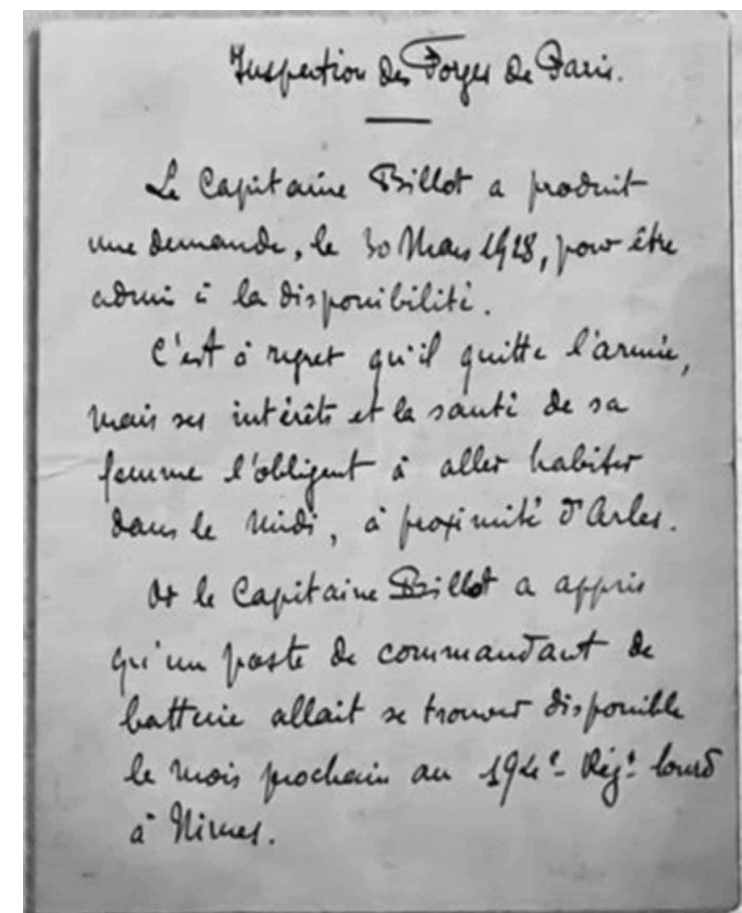 Inspection des Forges de Paris.
Le Capitaine Billot a produit
une demande, le 30 Mars 1928, pour être
admis à la disponibilité.
C'est à regret qu'il quitte l'armée,
mais ses intérêts et la santé de sa
femme l'obligent à aller habiter
dans le Midi, à proximité d'Arles.
Or le Capitaine Billot a appris
qu'un poste de commandant de
batterie allait se trouver disponible
le mois prochain au Régt lourd
à Nimes.